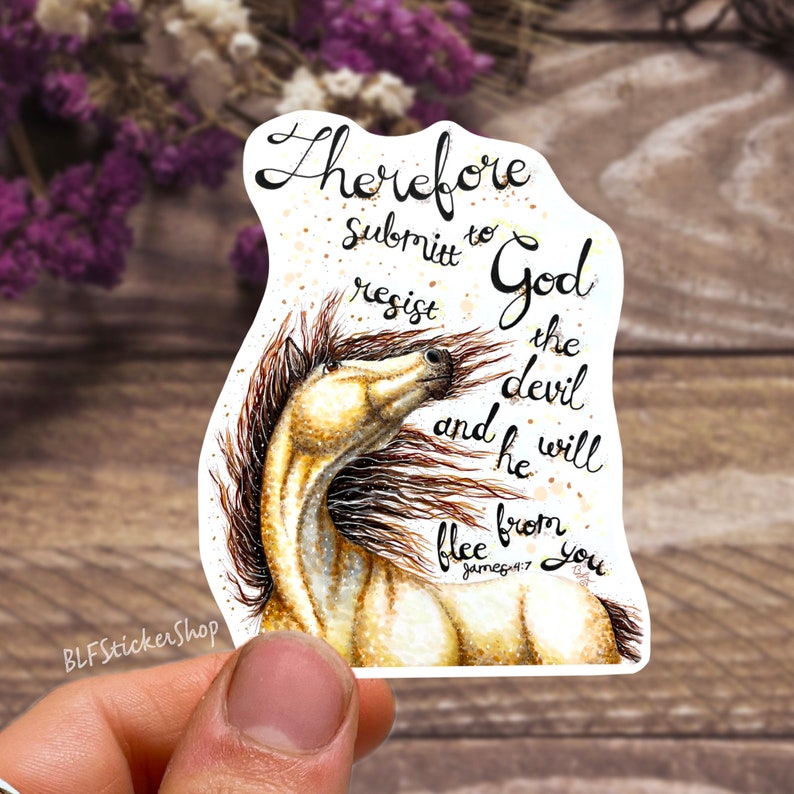 Therefore
submitt to God
resist the
devil
and he will
flee from you
James 4:7
BLFStickerShop